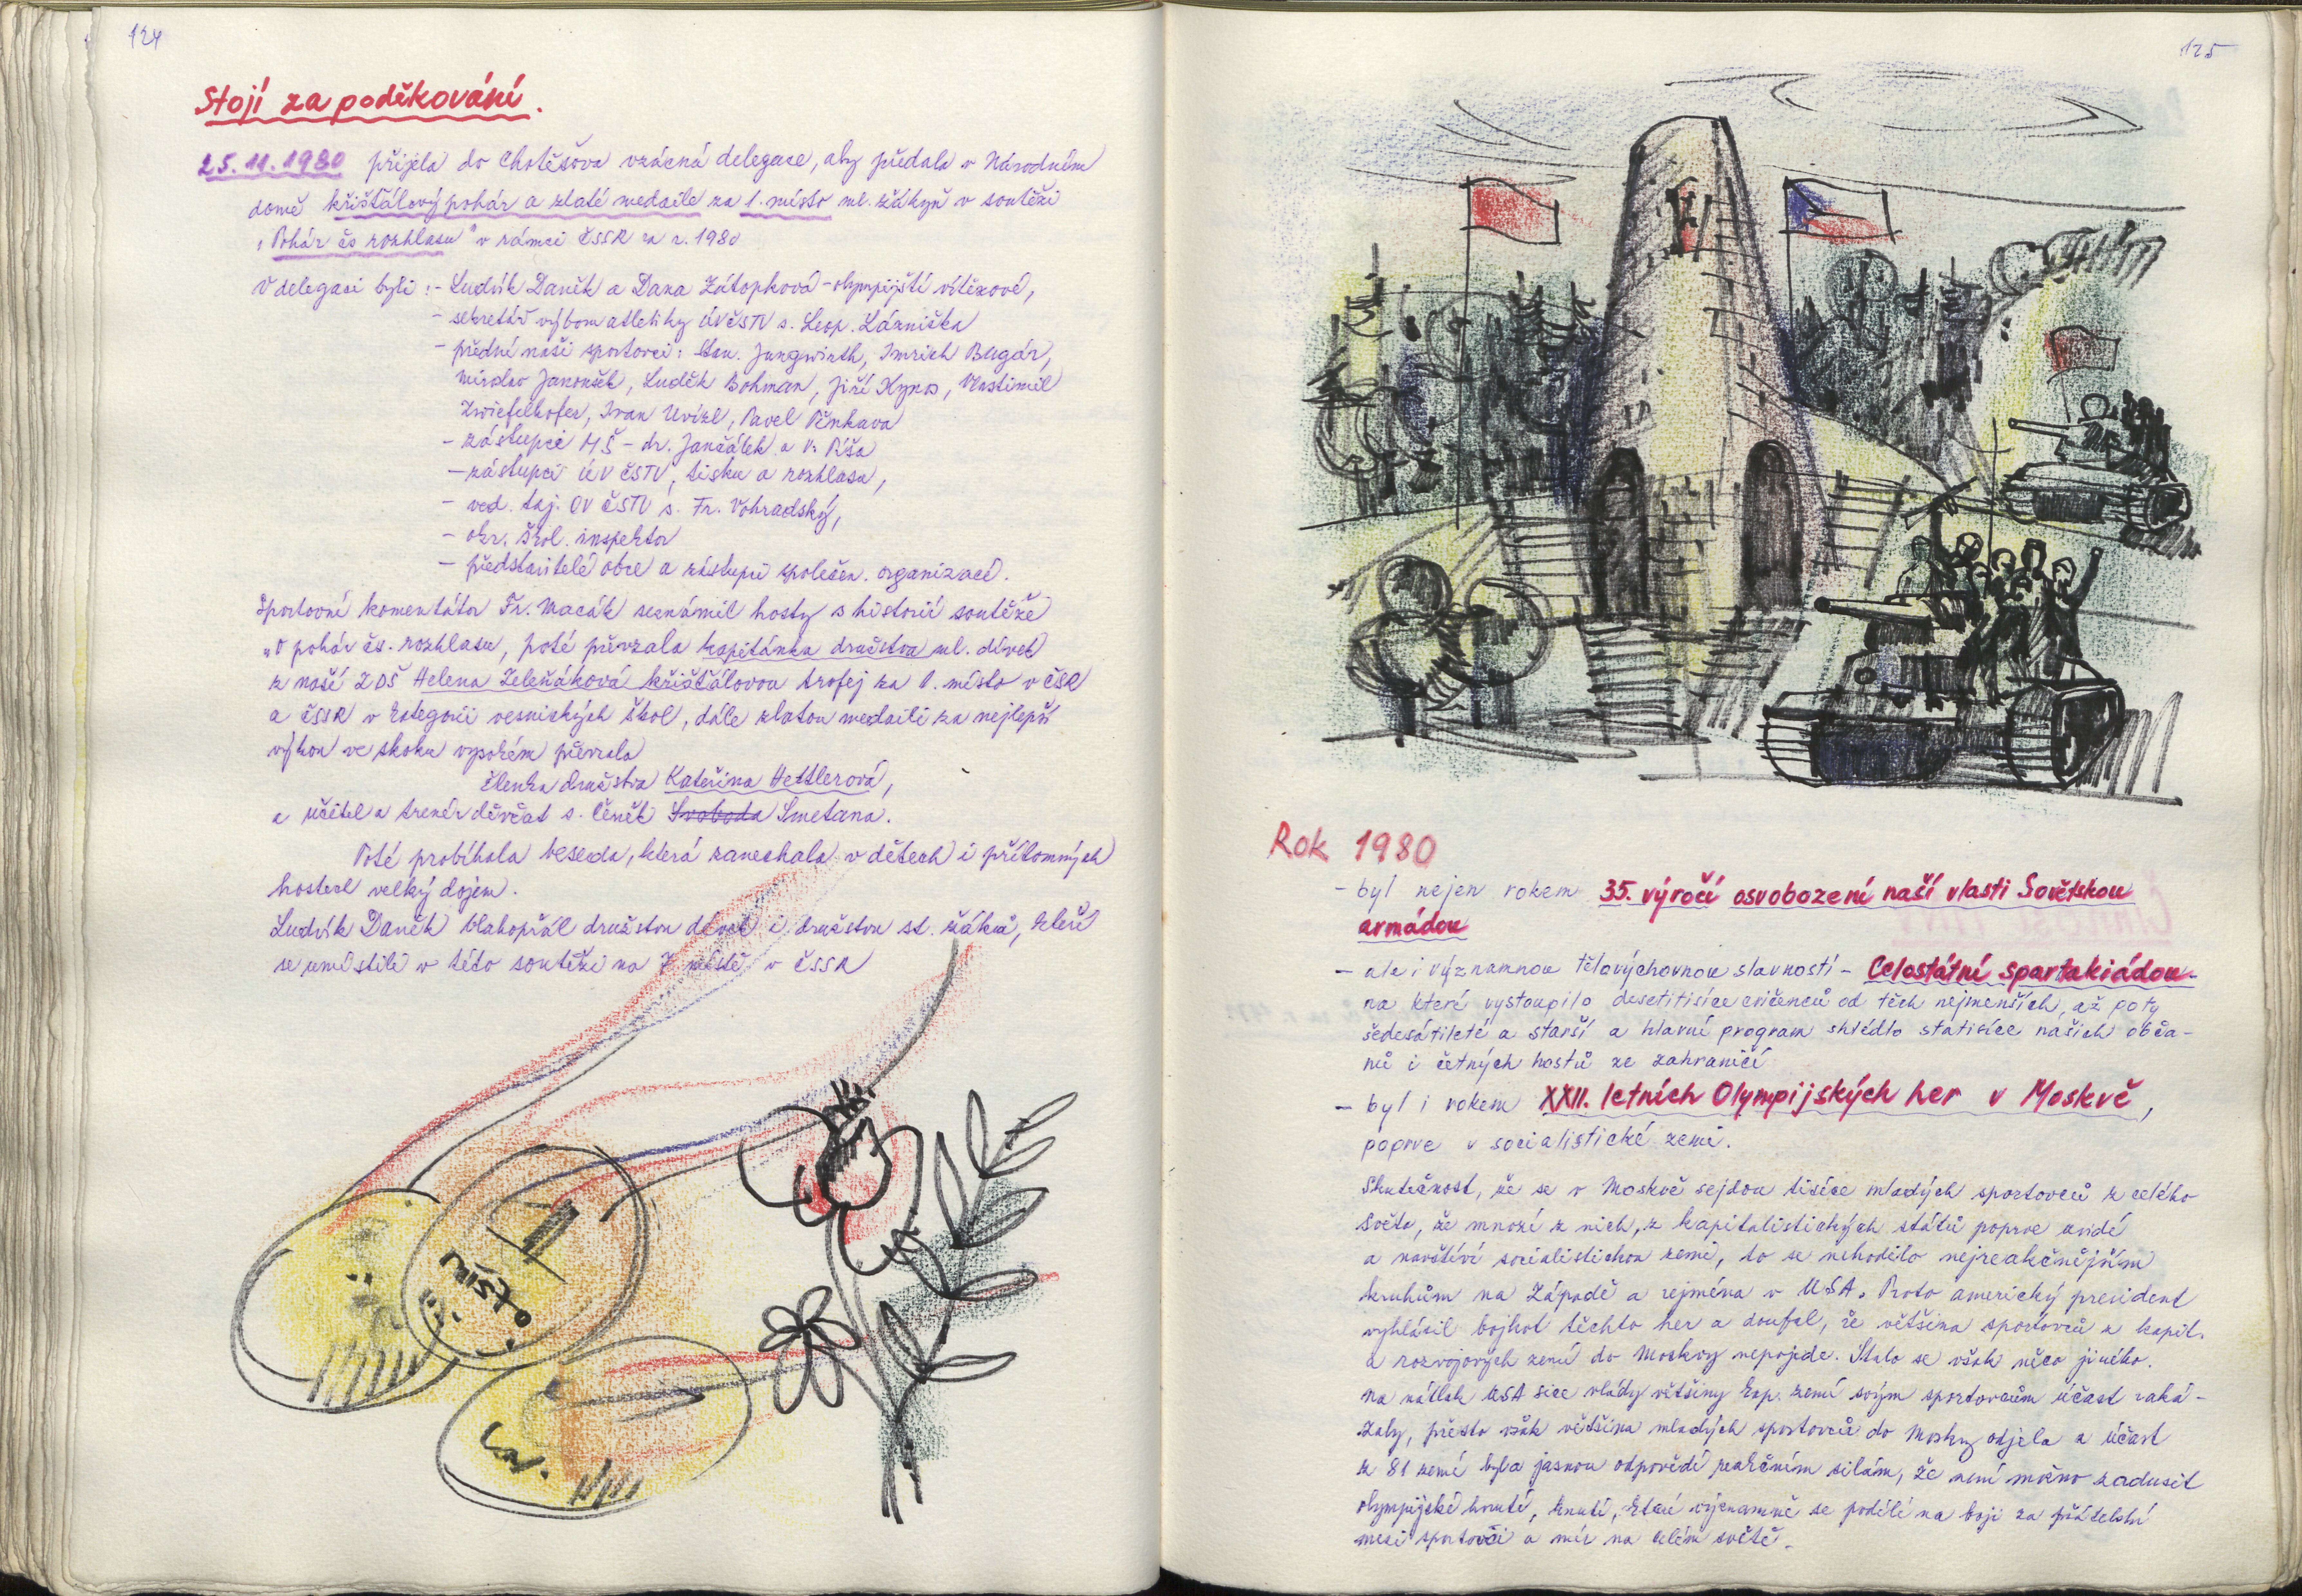 124
Stojí za poděkování.
25.11.1980 přijela do Chotěšova vzácná delegace, aby předala v Národním
domě křišťálový pohár a zlaté medaile za 1. místo ml. žákyň v soutěži
„Pohár čs rozhlasu" v rámci ČSSR za r. 1980
V delegaci byli: - Ludvík Daněk a Dana Zátopková - olympijští vítězové,
- sekretář výboru atletiky ÚVČSTV s. Leop. Lázniška
- přední naši sportovci: Stan. Jungwirth, Imrich Bugár,
Miroslav Janoušek, Luděk Bohman, Jiří Kynos, Vlastimil
Zwiefelhofer, Ivan Uvízl, Pavel Pěnkava
- zástupci MŠ - dr. Jančálek a V. Píša
- zástupci ÚV ČSTV, tisku a rozhlasu,
- ved. taj. OV ČSTV s. Fr. Vohradský,
- okr. škol. inspektor
- představitelé obce a zástupci společen. organizací.
Sportovní komentátor Fr. Macák seznámil hosty s historií soutěže
„O pohár čs. rozhlasu, poté převzala kapitánka družstva ml. dívek
z naší ZDŠ Helena Zeleňáková křišťálovou trofej za 1. místo v ČSR
a ČSSR v kategorii vesnických škol, dále zlatou medaili za nejlepší
výkon ve skoku vysokém převzala
členka družstva Kateřina Hettlerová,
a učitel a trenér děvčat s. Čeněk Svoboda Smetana.
Poté probíhala beseda, která zanechala v dětech i přítomných
hostech velký dojem.
Ludvík Daněk blahopřál družstvu dívek i družstvu st. žáků, kteří
se umístili v této soutěži na 7 místě v ČSSR
1. místo
125
Rok 1980
- byl nejen rokem 35. výročí osvobození naší vlasti Sovětskou
armádou
- ale i významnou tělovýchovnou slavností - Celostátní spartakiádou -
na které vystoupilo desetitisíce cvičenců od těch nejmenších, až po ty
šedesátileté a starší a hlavní program shlédlo statisíce našich obča-
nů i četných hostů ze zahraničí
- byl i rokem XXII. letních Olympijských her v Moskvě,
poprve v socialistické zemi.
Skutečnost, že se v Moskvě sejdou tisíce mladých sportovců z celého
světa, že mnozí z nich, z kapitalistických států poprve uvidí
a navštíví socialistickou zemi, to se nehodilo nejreakčnějším
kruhům na Západě a zejména v USA. Proto americký president
vyhlásil bojkot těchto her a doufal, že většina sportovců z kapit.
a rozvojových zemí do Moskvy nepojede. Stalo se však něco jiného.
Na nátlak USA sice vlády většiny kap. zemí svým sportovcům účast zaká-
zaly, přesto však většina mladých sportovců do Moskvy odjela a účast
z 81 zemí byla jasnou odpovědí reakčním silám, že není možno zadusit
olympijské hnutí, hnutí, které významně se podílí na boji za přátelství
mezi sportovci a mír na celém světě.